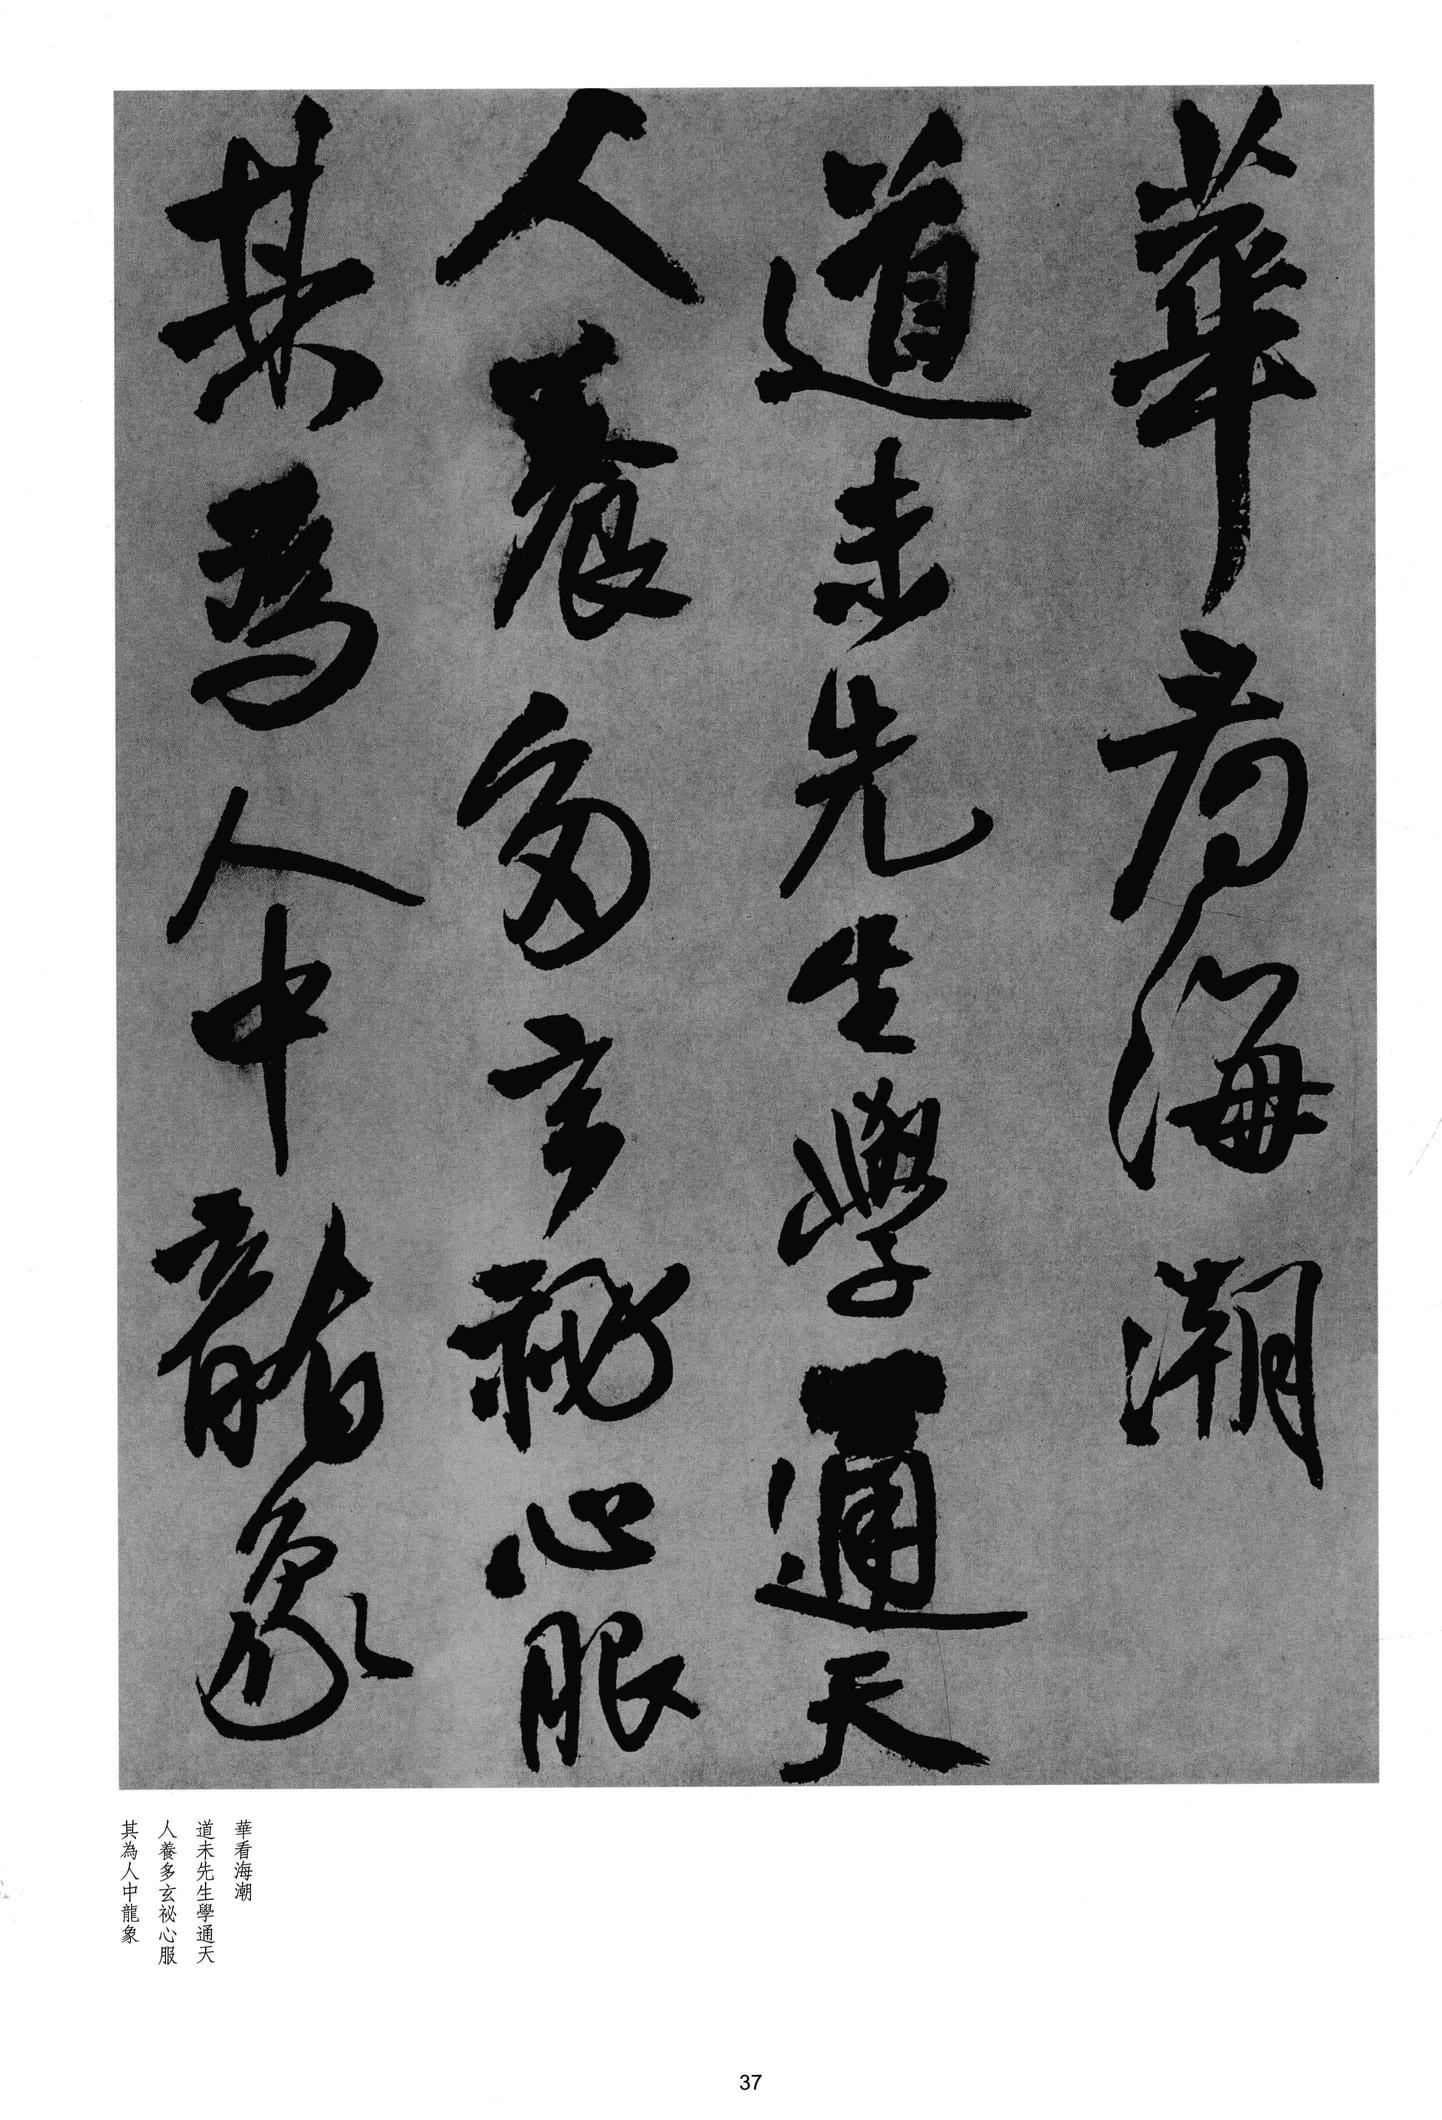 華看海潮
道未先生學通天
人養多玄祕心服
其為人中龍象
華看海潮
道未先生學通天
人養多玄祕心服
其為人中龍象
37